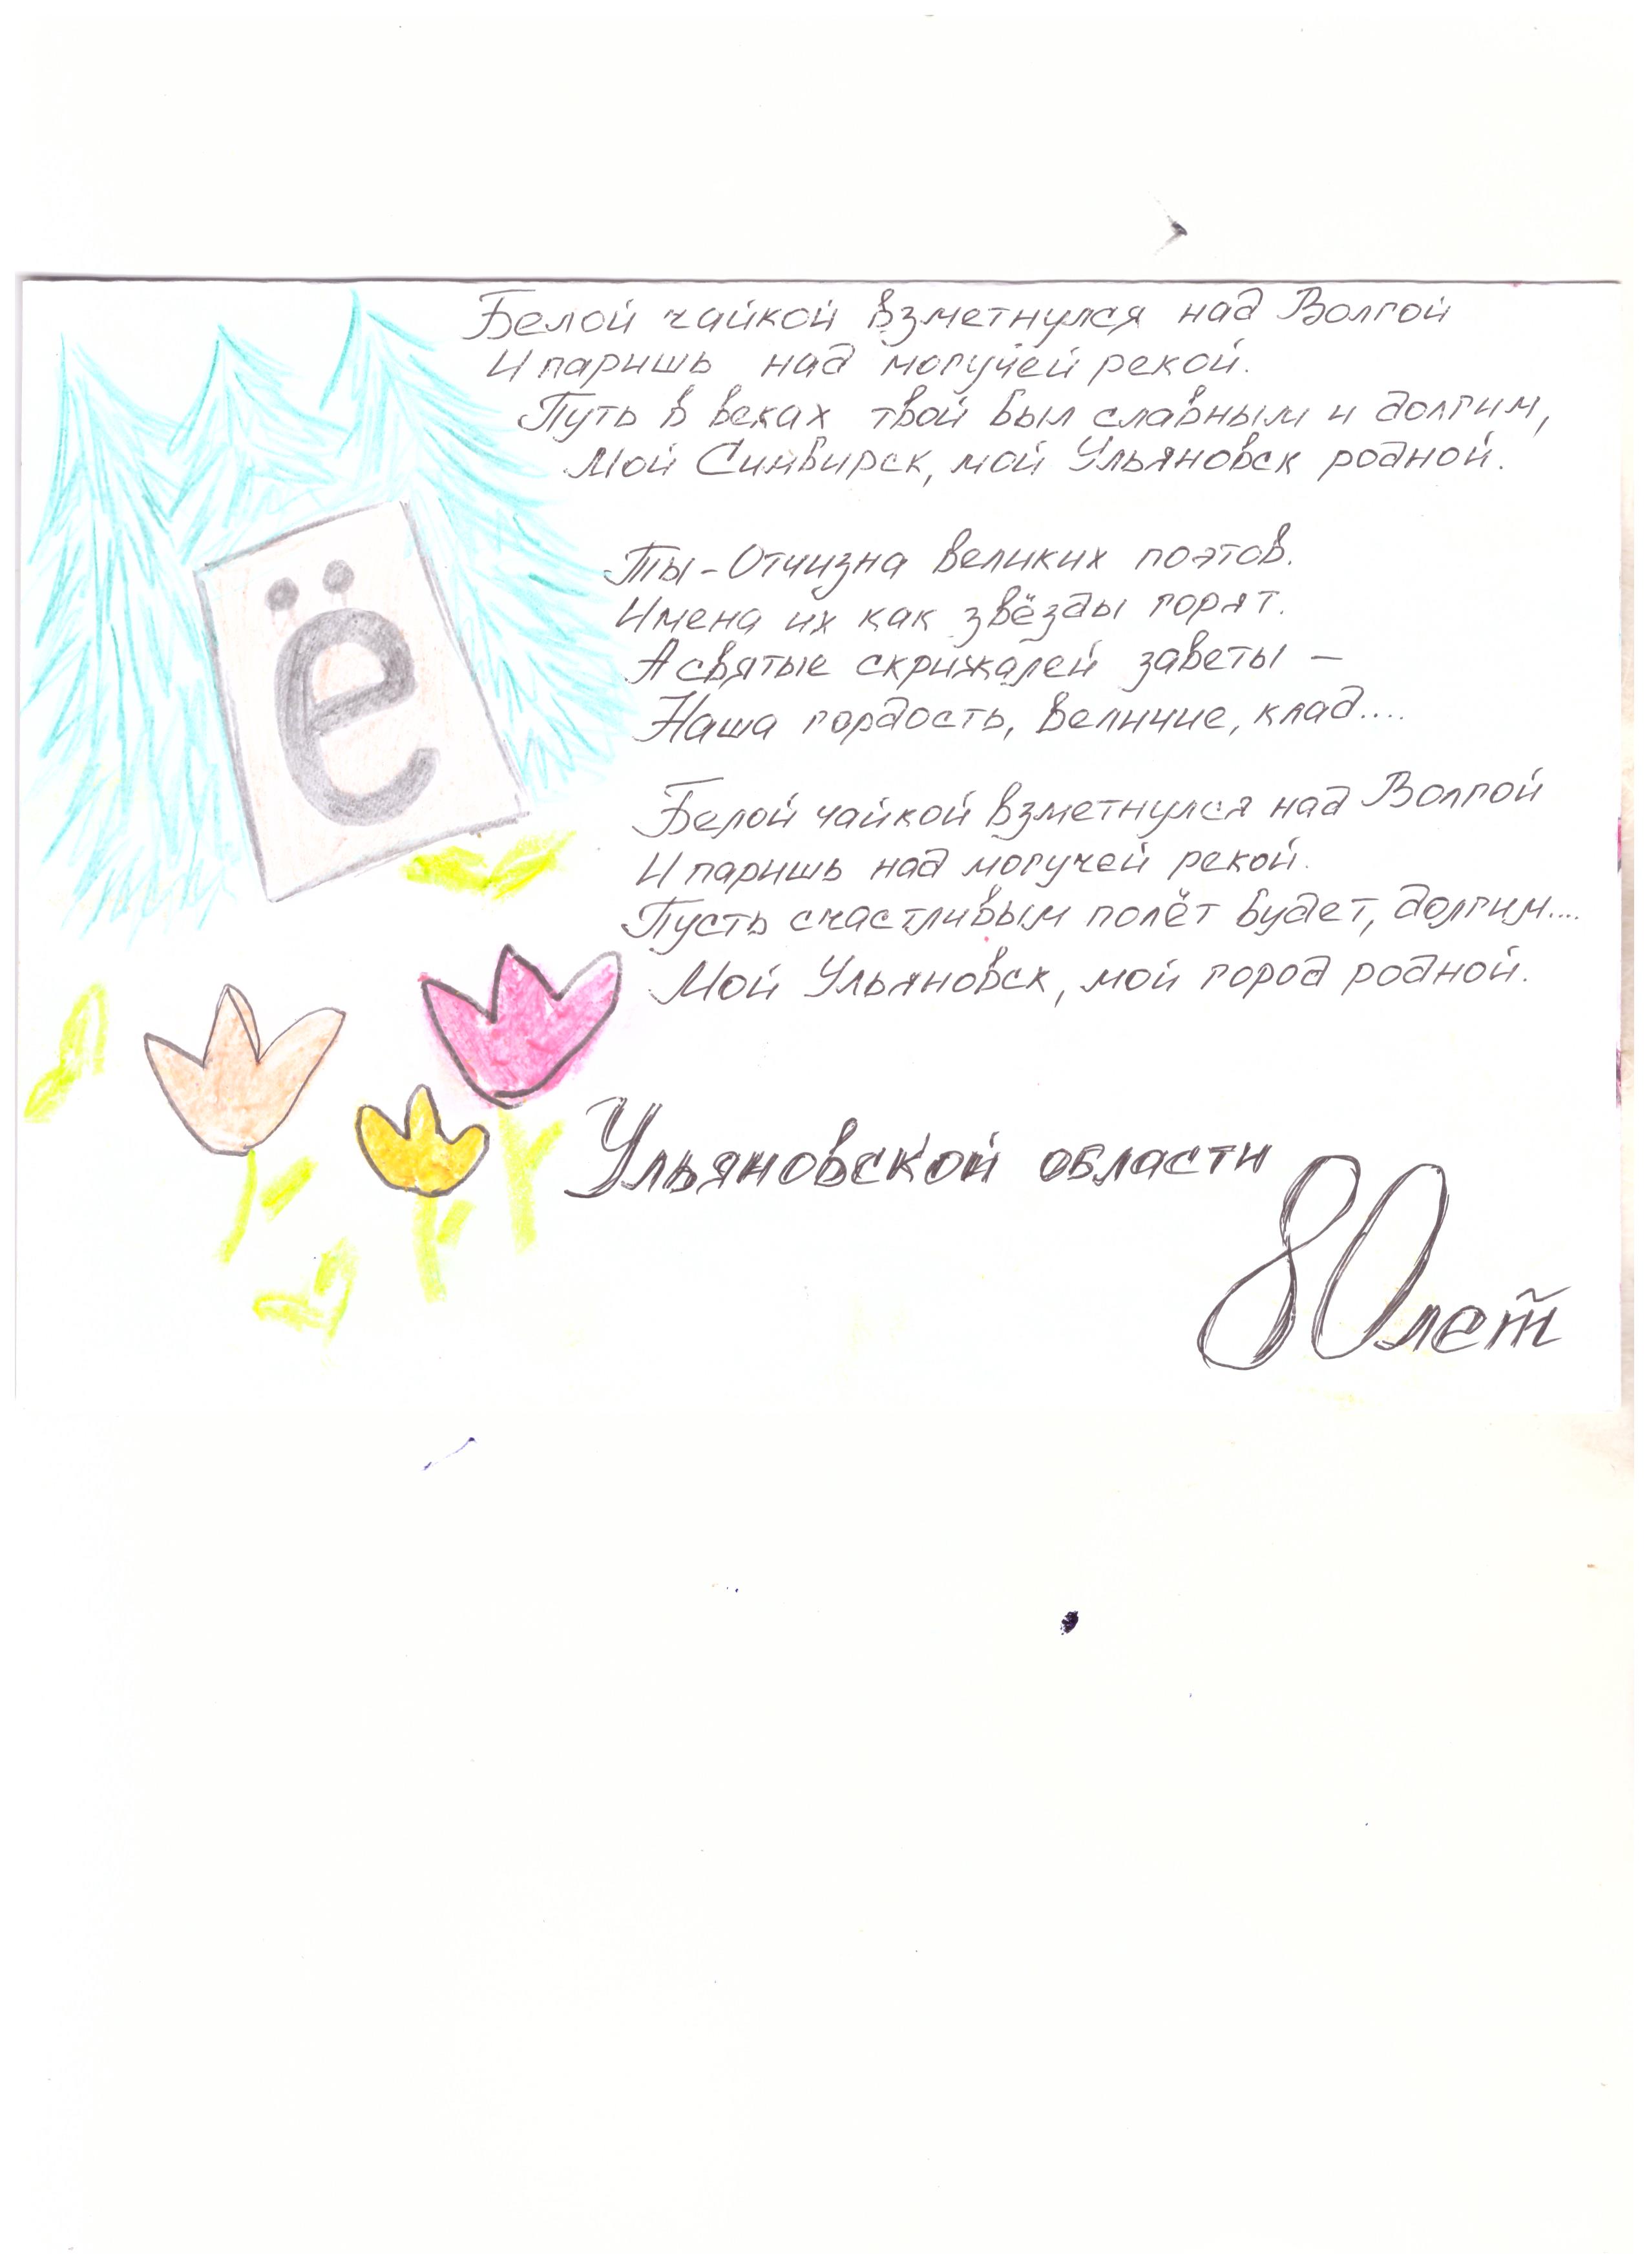 Белой чайкой взметнулся над Волгой
И паришь над могучей рекой.
Путь в веках твой был славным и долгим,
Мой Симбирск, мой Ульяновск родной.
Ты - Отчизна великих поэтов.
Имена их как звёзды горят.
А святые скрижалей заветы –
Наша гордость, величие, клад....
Белой чайкой взметнулся над Волгой
И паришь над могучей рекой.
Пусть счастливым полёт будет, долгим....
Мой Ульяновск, мой город родной.
ё
Ульяновской области
80 лет